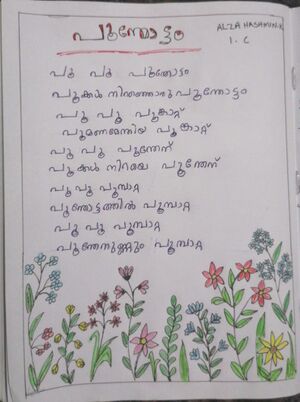 പൂന്തോട്ടം
ALZA HASHMIN.K
1. C
പൂ പൂ പൂന്തോട്ടം
പൂക്കൾ നിറഞ്ഞൊരു പൂന്തോട്ടം
പൂ പൂ പൂങ്കാറ്റ്
പൂമണമേന്തിയ പൂങ്കാറ്റ്
പൂ പൂ പൂന്തേന്
പൂക്കൾ നിറയെ പൂന്തേന്
പൂ പൂ പൂമ്പാറ്റ
പൂന്തോട്ടത്തിൽ പൂമ്പാറ്റ
പൂ പൂ പൂമ്പാറ്റ
പൂന്തേനുണ്ണും പൂമ്പാറ്റ